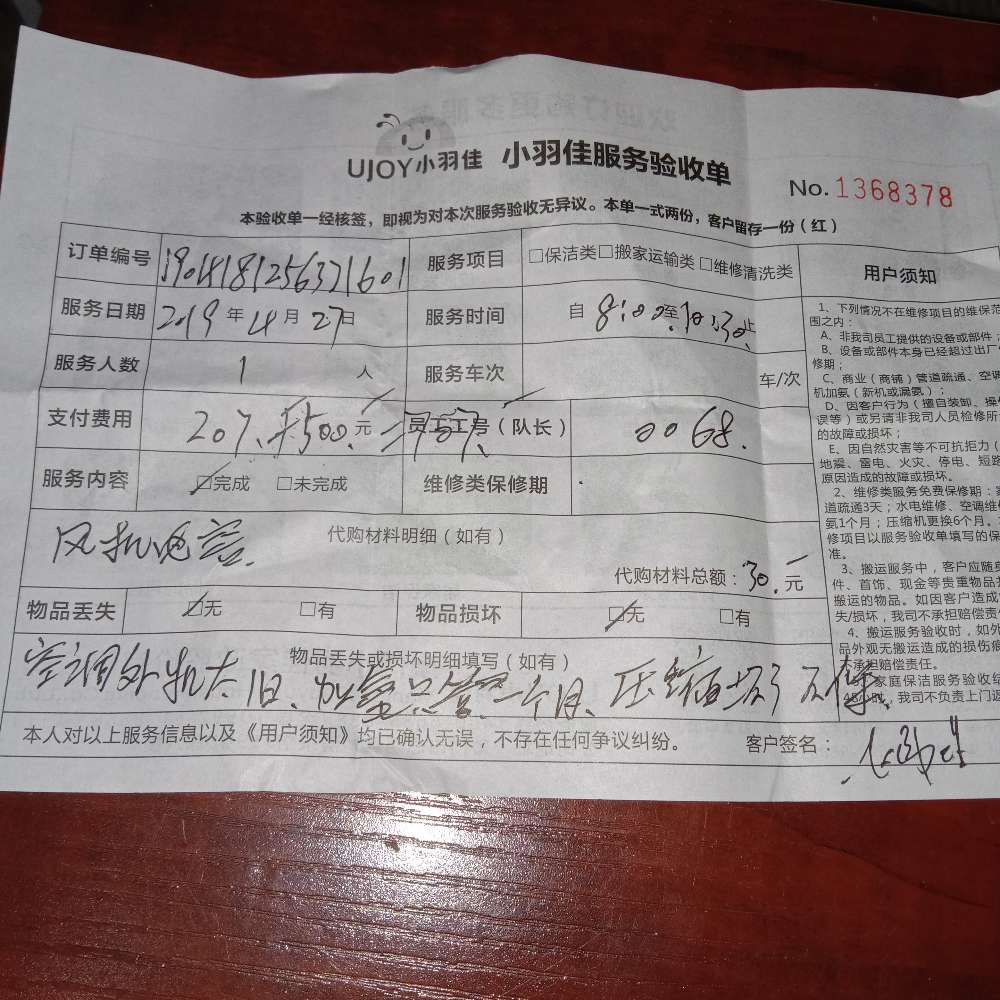 UJOY小羽佳 小羽佳服务验收单
No.1368378
本验收单一经核签，即视为对本次服务验收无异议。本单一式两份，客户留存一份（红）
订单编号 1904181256371601 服务项目 □保洁类□搬家运输类□维修清洗类
服务日期 2019年4月27日 服务时间 自8:00至10:30止
服务人数 1人 服务车次 车/次
支付费用 207.+500.元 员工工号（队长） 0068.
服务内容 ☑完成 □未完成 维修类保修期
代购材料明细（如有）
风机电容.
代购材料总额：30.元
物品丢失 ☑无 □有 物品损坏 ☑无 □有
物品丢失或损坏明细填写（如有）
空调外机太旧、加氨只管一个月、压缩坏了不保.
本人对以上服务信息以及《用户须知》均已确认无误，不存在任何争议纠纷。 客户签名：
用户须知
1、下列情况不在维修项目的维保范
围之内：
A、非我司员工提供的设备或部件；
B、设备或部件本身已经超过出厂
修期；
C、商业（商铺）管道疏通、空调
机加氨（新机或漏氨）；
D、因客户行为（擅自装卸、操作
误等）或另请非我司人员检修所
的故障或损坏；
E、因自然灾害等不可抗拒力（
地震、雷电、火灾、停电、短路
原因造成的故障或损坏。
2、维修类服务免费保修期：
道疏通3天；水电维修、空调维
氨1个月；压缩机更换6个月。
修项目以服务验收单填写的保
准。
3、搬运服务中，客户应随身
件、首饰、现金等贵重物品
搬运的物品。如因客户造成
失/损坏，我司不承担赔偿责
4、搬运服务验收时，如外
品外观无搬运造成的损伤痕
不承担赔偿责任。
家庭保洁服务验收结
48小时，我司不负责上门返